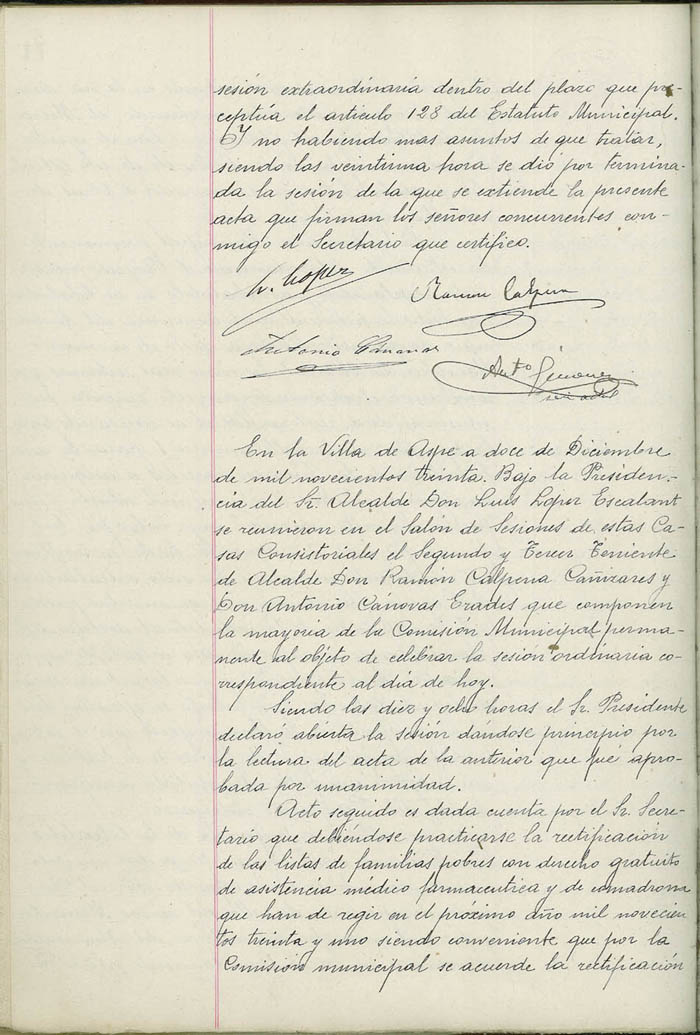 sesión extraordinaria dentro del plazo que pre-
ceptúa el artículo 128 del Estatuto Municipal.
Y no habiendo mas asuntos de que tratar,
siendo las veintiuna hora se dió por termina-
da la sesión de la que se extiende la presente
acta que firman los señores concurrentes con-
migo el Secretario que certifico.
L. Lopez
Ramon Calpena
Antonio Cánovas
Anto Gimenez
En la Villa de Aspe a doce de Diciembre
de mil novecientos treinta. Bajo la Presiden-
cia del Sr. Alcalde Don Luis López Escalant
se reunieron en el Salón de Sesiones de estas Ca-
sas Consistoriales el Segundo y Tercer Teniente
de Alcalde Don Ramón Calpena Cañizares y
Don Antonio Cánovas Erades que componen
la mayoria de la Comisión Municipal perma-
nente al objeto de celebrar la sesión ordinaria co-
rrespondiente al día de hoy.
Siendo las diez y ocho horas el Sr. Presidente
declaró abierta la sesión dándose principio por
la lectura del acta de la anterior que fué apro-
bada por unanimidad.
Acto seguido es dada cuenta por el Sr. Secre-
tario que debiéndose practicarse la rectificación
de las listas de familias pobres con derecho gratuito
de asistencia médico farmaceutica y de comadrona
que han de regir en el próximo año mil novecien
tos treinta y uno siendo conveniente que por la
Comisión municipal se acuerde la rectificación